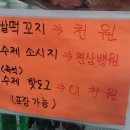 쌀떡 꼬지 → 천 원
수제 소시지 → 천삼백원
수제 핫도그 → 이 천원
(포장 가능)